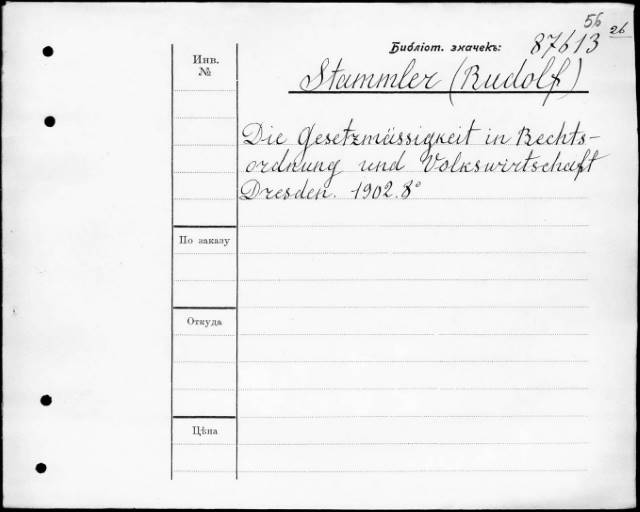 56 26
Библіот. значекъ: 87613
Инв.
№
Stammler (Rudolf)
Die Gesetzmässigkeit in Rechts-
ordnung und Volkswirtschaft
Dresden. 1902. 8°
По заказу
Откуда
Цѣна